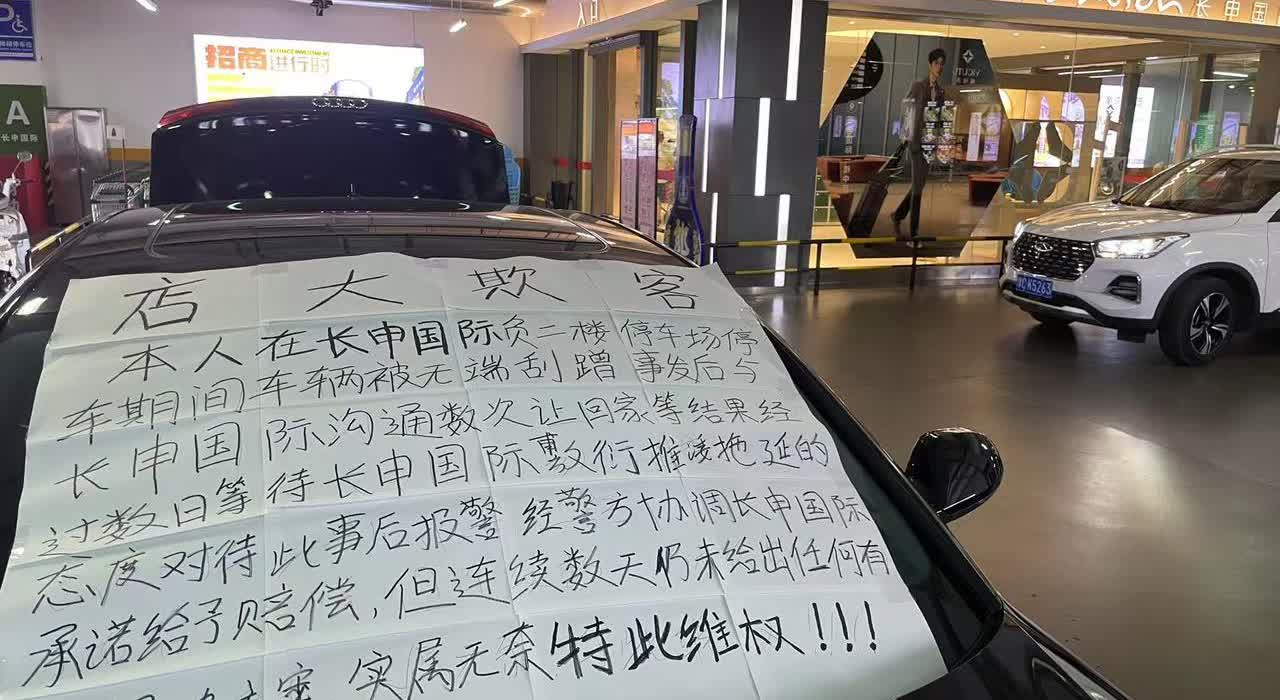 入口
长申国
招商进行时
A
长申国际
VICUTU
店大欺客
本人在长申国际负二楼停车场停
车期间车辆被无端刮蹭事发后与
长申国际沟通数次让回家等结果经
过数日等待长申国际敷衍推诿拖延的
态度对待此事后报警经警方协调长申国际
承诺给予赔偿,但连续数天仍未给出任何有
实属无奈特此维权!!!